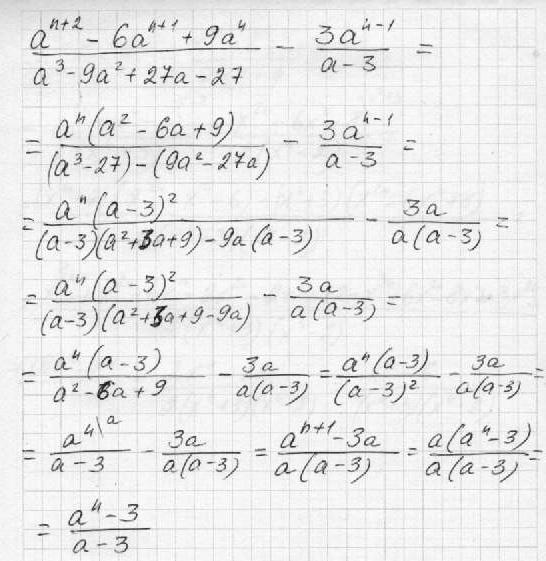 (a^(n+2) - 6a^(n+1) + 9a^n)/(a³ - 9a² + 27a - 27) - 3a^(n-1)/(a - 3) =
= a^n(a² - 6a + 9)/((a³ - 27) - (9a² - 27a)) - 3a^(n-1)/(a - 3) =
= a^n(a - 3)²/((a - 3)(a² + 3a + 9) - 9a(a - 3)) - 3a/(a(a - 3)) =
= a^n(a - 3)²/((a - 3)(a² + 3a + 9 - 9a)) - 3a/(a(a - 3)) =
= a^n(a - 3)/(a² - 6a + 9) - 3a/(a(a - 3)) = a^n(a - 3)/(a - 3)² - 3a/(a(a - 3)) =
= a^n\a/(a - 3) - 3a/(a(a - 3)) = (a^(n+1) - 3a)/(a(a - 3)) = a(a^n - 3)/(a(a - 3)) =
= (a^n - 3)/(a - 3)